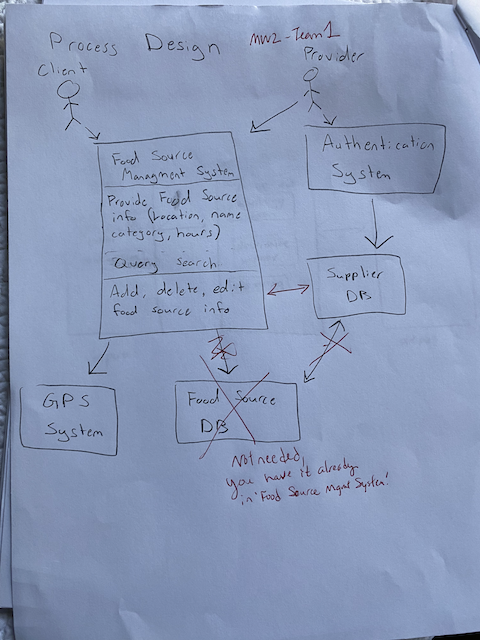 Process Design
MW2-Team1
Client
Provider
Food Source
Managment System
Provide Food Source
info (Location, name
category, hours)
Query Search
Add, delete, edit
food source info
Authentication
System
Supplier
DB
GPS
System
Food Source
DB
Not needed,
you have it already
in 'Food Source Mgmt System'!